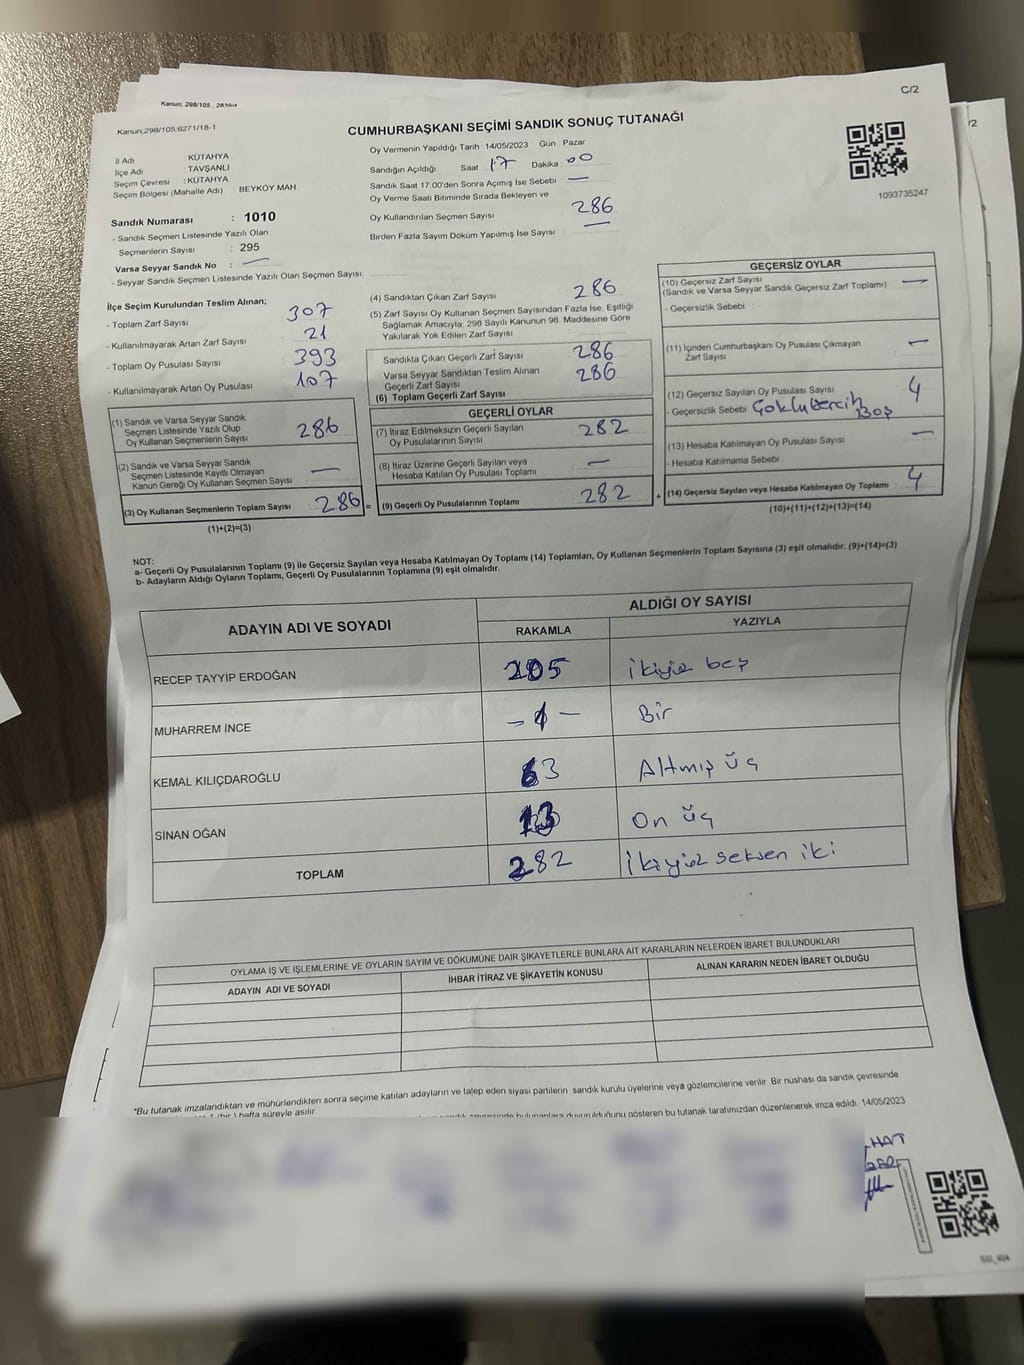 Kanun, 298/105
C/2
/2
Kanun;298/105;6271/18-1
CUMHURBAŞKANI SEÇİMİ SANDIK SONUÇ TUTANAĞI
1093735247
İl Adı KÜTAHYA
İlçe Adı : TAVŞANLI
Seçim Çevresi : KÜTAHYA
Seçim Bölgesi (Mahalle Adı) : BEYKÖY MAH
Sandık Numarası : 1010
- Sandık Seçmen Listesinde Yazılı Olan
Seçmenlerin Sayısı : 295
Varsa Seyyar Sandık No : —
- Seyyar Sandık Seçmen Listesinde Yazılı Olan Seçmen Sayısı:
Oy Vermenin Yapıldığı Tarih 14/05/2023 Gün : Pazar
Sandığın Açıldığı Saat 17 Dakika : 00
Sandık Saat 17:00'den Sonra Açımış İse Sebebi —
Oy Verme Saati Bitiminde Sırada Bekleyen ve
Oy Kullandırılan Seçmen Sayısı 286
Birden Fazla Sayım Döküm Yapılmış İse Sayısı —
İlçe Seçim Kurulundan Teslim Alınan;
- Toplam Zarf Sayısı 307
- Kullanılmayarak Artan Zarf Sayısı : 21
- Toplam Oy Pusulası Sayısı 393
- Kullanılmayarak Artan Oy Pusulası 107
(1) Sandık ve Varsa Seyyar Sandık
Seçmen Listesinde Yazılı Olup
Oy Kullanan Seçmenlerin Sayısı : 286
(2) Sandık ve Varsa Seyyar Sandık
Seçmen Listesinde Kayıtlı Olmayan
Kanun Gereği Oy Kullanan Seçmen Sayısı —
(3) Oy Kullanan Seçmenlerin Toplam Sayısı : 286
(1)+(2)=(3)
(4) Sandıktan Çıkan Zarf Sayısı : 286
(5) Zarf Sayısı Oy Kullanan Seçmen Sayısından Fazla İse, Eşitliği
Sağlamak Amacıyla; 298 Sayılı Kanunun 98. Maddesine Göre
Yakılarak Yok Edilen Zarf Sayısı :
Sandıkta Çıkan Geçerli Zarf Sayısı : 286
Varsa Seyyar Sandıktan Teslim Alınan
Geçerli Zarf Sayısı 286
(6) Toplam Geçerli Zarf Sayısı
=
GEÇERLİ OYLAR
(7) İtiraz Edilmeksizin Geçerli Sayılan
Oy Pusulalarının Sayısı : 282
(8) İtiraz Üzerine Geçerli Sayılan veya
Hesaba Katılan Oy Pusulası Toplamı : —
(9) Geçerli Oy Pusulalarının Toplamı : 282
+
GEÇERSİZ OYLAR
(10) Geçersiz Zarf Sayısı
(Sandık ve Varsa Seyyar Sandık Geçersiz Zarf Toplamı) : —
- Geçersizlik Sebebi :
(11) İçinden Cumhurbaşkanı Oy Pusulası Çıkmayan
Zarf Sayısı : —
(12) Geçersiz Sayılan Oy Pusulası Sayısı : 4
- Geçersizlik Sebebi Çoklu tercih
Boş
(13) Hesaba Katılmayan Oy Pusulası Sayısı : —
- Hesaba Katılmama Sebebi :
(14) Geçersiz Sayılan veya Hesaba Katılmayan Oy Toplamı : 4
(10)+(11)+(12)+(13)=(14)
NOT:
a- Geçerli Oy Pusulalarının Toplamı (9) ile Geçersiz Sayılan veya Hesaba Katılmayan Oy Toplamı (14) Toplamları, Oy Kullanan Seçmenlerin Toplam Sayısına (3) eşit olmalıdır. (9)+(14)=(3)
b- Adayların Aldığı Oyların Toplamı, Geçerli Oy Pusulalarının Toplamına (9) eşit olmalıdır.
ADAYIN ADI VE SOYADI
ALDIĞI OY SAYISI
RAKAMLA YAZIYLA
RECEP TAYYİP ERDOĞAN 205 ikiyüz beş
MUHARREM İNCE -1- Bir
KEMAL KILIÇDAROĞLU 63 Altmış üç
SİNAN OĞAN 13 On üç
TOPLAM 282 ikiyüz seksen iki
OYLAMA İŞ VE İŞLEMLERİNE VE OYLARIN SAYIM VE DÖKÜMÜNE DAİR ŞİKAYETLERLE BUNLARA AİT KARARLARIN NELERDEN İBARET BULUNDUKLARI
ADAYIN ADI VE SOYADI İHBAR İTİRAZ VE ŞİKAYETİN KONUSU ALINAN KARARIN NEDEN İBARET OLDUĞU
*Bu tutanak imzalandıktan ve mühürlendikten sonra seçime katılan adayların ve talep eden siyasi partilerin sandık kurulu üyelerine veya gözlemcilerine verilir. Bir nüshası da sandık çevresinde
1 (bir ) hafta süreyle asılır.
bulunanlara duyurulduğunu gösteren bu tutanak tarafımızdan düzenlenerek imza edildi. 14/05/2023